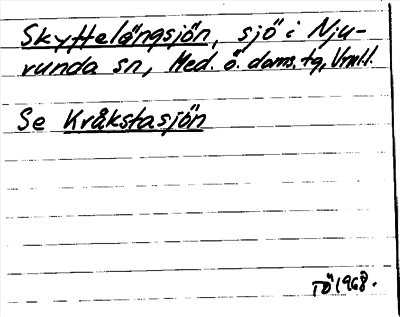 Skyttelängsjön, sjö i Nju-
runda sn, Med. ö. doms. tg, Vnrl.
Se Kråkstasjön
TÖ 1968.